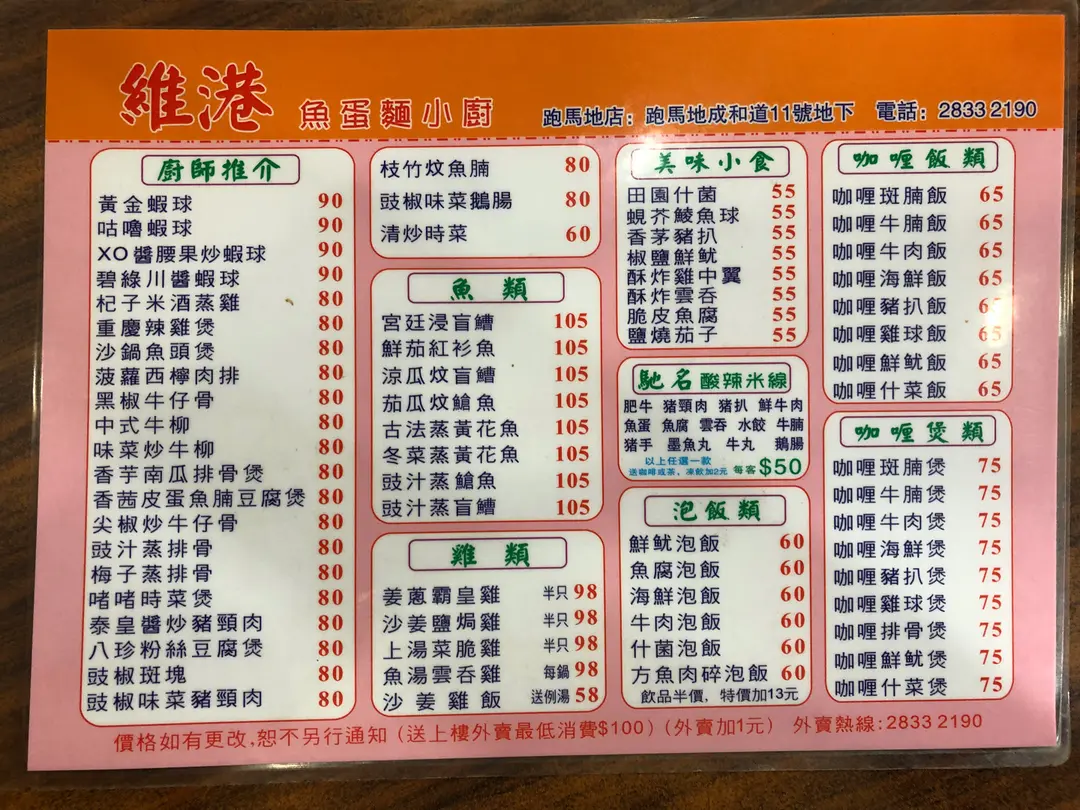 維港 魚蛋麵小廚 跑馬地店：跑馬地成和道11號地下 電話：2833 2190
廚師推介
黃金蝦球 90
咕嚕蝦球 90
XO醬腰果炒蝦球 90
碧綠川醬蝦球 90
杞子米酒蒸雞 80
重慶辣雞煲 80
沙鍋魚頭煲 80
菠蘿西檸肉排 80
黑椒牛仔骨 80
中式牛柳 80
味菜炒牛柳 80
香芋南瓜排骨煲 80
香茜皮蛋魚腩豆腐煲 80
尖椒炒牛仔骨 80
豉汁蒸排骨 80
梅子蒸排骨 80
啫啫時菜煲 80
泰皇醬炒豬頸肉 80
八珍粉絲豆腐煲 80
豉椒斑塊 80
豉椒味菜豬頸肉 80
枝竹炆魚腩 80
豉椒味菜鵝腸 80
清炒時菜 60
魚類
宮廷浸盲鰽 105
鮮茄紅衫魚 105
涼瓜炆盲鰽 105
茄瓜炆鯧魚 105
古法蒸黃花魚 105
冬菜蒸黃花魚 105
豉汁蒸鯧魚 105
豉汁蒸盲鰽 105
雞類
姜蔥霸皇雞 半只 98
沙姜鹽焗雞 半只 98
上湯菜脆雞 半只 98
魚湯雲吞雞 每鍋 98
沙姜雞飯 送例湯 58
美味小食
田園什菌 55
蜆芥鯪魚球 55
香茅豬扒 55
椒鹽鮮魷 55
酥炸雞中翼 55
酥炸雲吞 55
脆皮魚腐 55
鹽燒茄子 55
馳名酸辣米線
肥牛 豬頸肉 豬扒 鮮牛肉
魚蛋 魚腐 雲吞 水餃 牛腩
豬手 墨魚丸 牛丸 鵝腸
以上任選一款
送咖啡或茶、凍飲加2元 每客$50
泡飯類
鮮魷泡飯 60
魚腐泡飯 60
海鮮泡飯 60
牛肉泡飯 60
什菌泡飯 60
方魚肉碎泡飯 60
飲品半價，特價加13元
咖喱飯類
咖喱斑腩飯 65
咖喱牛腩飯 65
咖喱牛肉飯 65
咖喱海鮮飯 65
咖喱豬扒飯 65
咖喱雞球飯 65
咖喱鮮魷飯 65
咖喱什菜飯 65
咖喱煲類
咖喱斑腩煲 75
咖喱牛腩煲 75
咖喱牛肉煲 75
咖喱海鮮煲 75
咖喱豬扒煲 75
咖喱雞球煲 75
咖喱排骨煲 75
咖喱鮮魷煲 75
咖喱什菜煲 75
價格如有更改,恕不另行通知（送上樓外賣最低消費$100）（外賣加1元） 外賣熱線:2833 2190